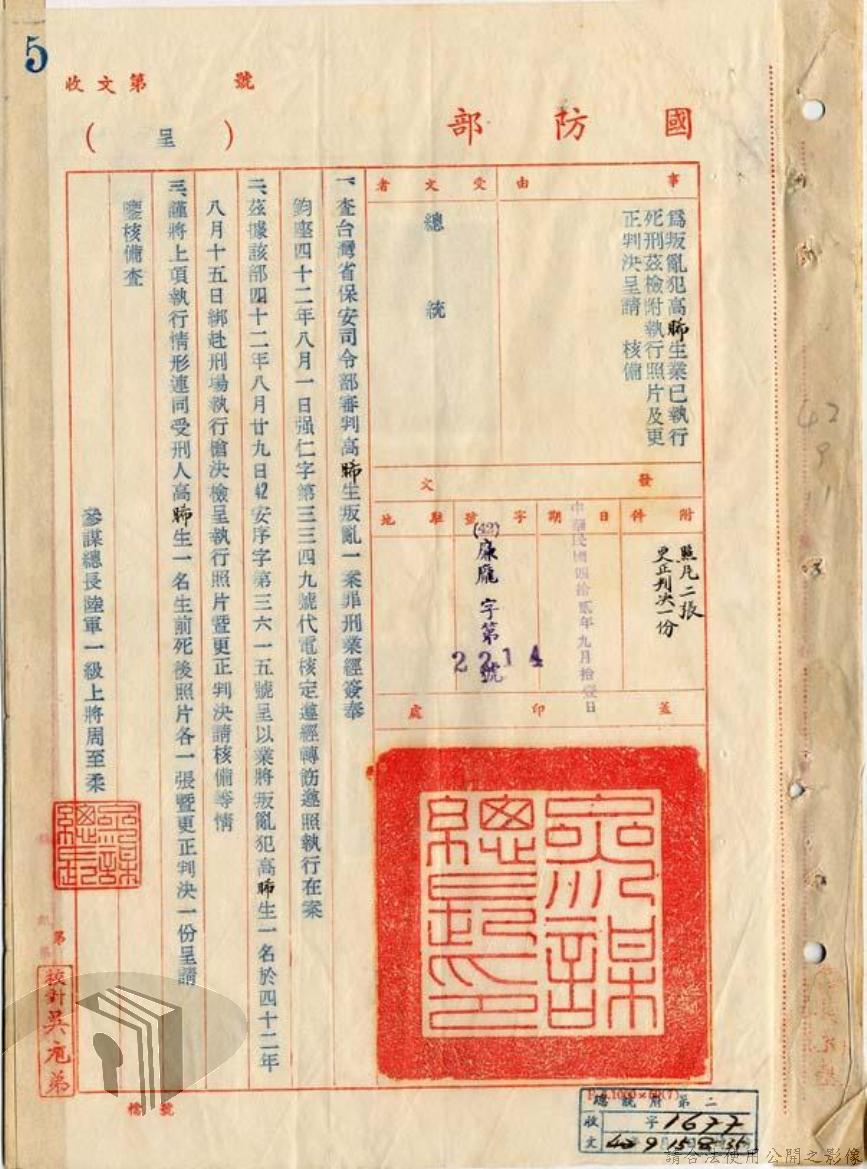 5
收文第 號
國防部
(呈)
事由
為叛亂犯高晞生業已執行
死刑茲檢附執行照片及更
正判決呈請 核備
受文者
總統
發文
附件
照片二張
更正判決一份
日期
中華民國四拾貳年九月拾壹日
字號
(42)廉龐字第2214號
駐地
蓋印處
參謀總長印
一、查台灣省保安司令部審判高晞生叛亂一案罪刑業經簽奉
鈞座四十二年八月一日强仁字第三三四九號代電核定遵經轉飭遵照執行在案
二、茲據該部四十二年八月廿九日42安序字第三六一五號呈以業將叛亂犯高晞生一名於四十二年
八月十五日綁赴刑場執行槍決檢呈執行照片暨更正判決請核備等情
三、謹將上項執行情形連同受刑人高晞生一名生前死後照片各一張暨更正判決一份呈請
鑒核備查
參謀總長陸軍一級上將周至柔
參謀總長
校對吳
檔號
總統府第二
收文 字1677
42 9 15
42
9
請合法使用公開之影像